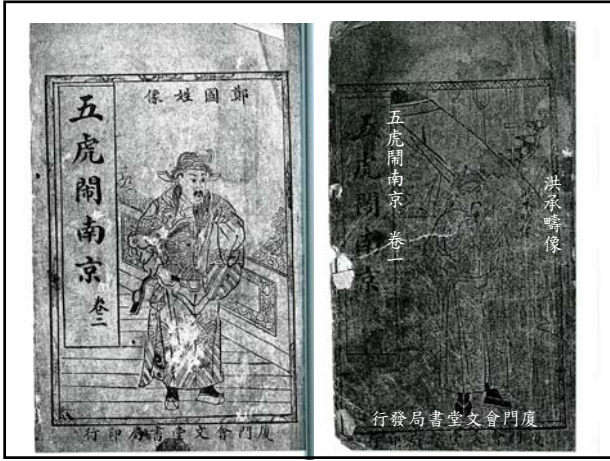 鄭國姓像
五虎鬧南京 卷二
廈門會文堂書局印行
洪承疇像
五虎鬧南京 卷一
廈門會文堂書局發行